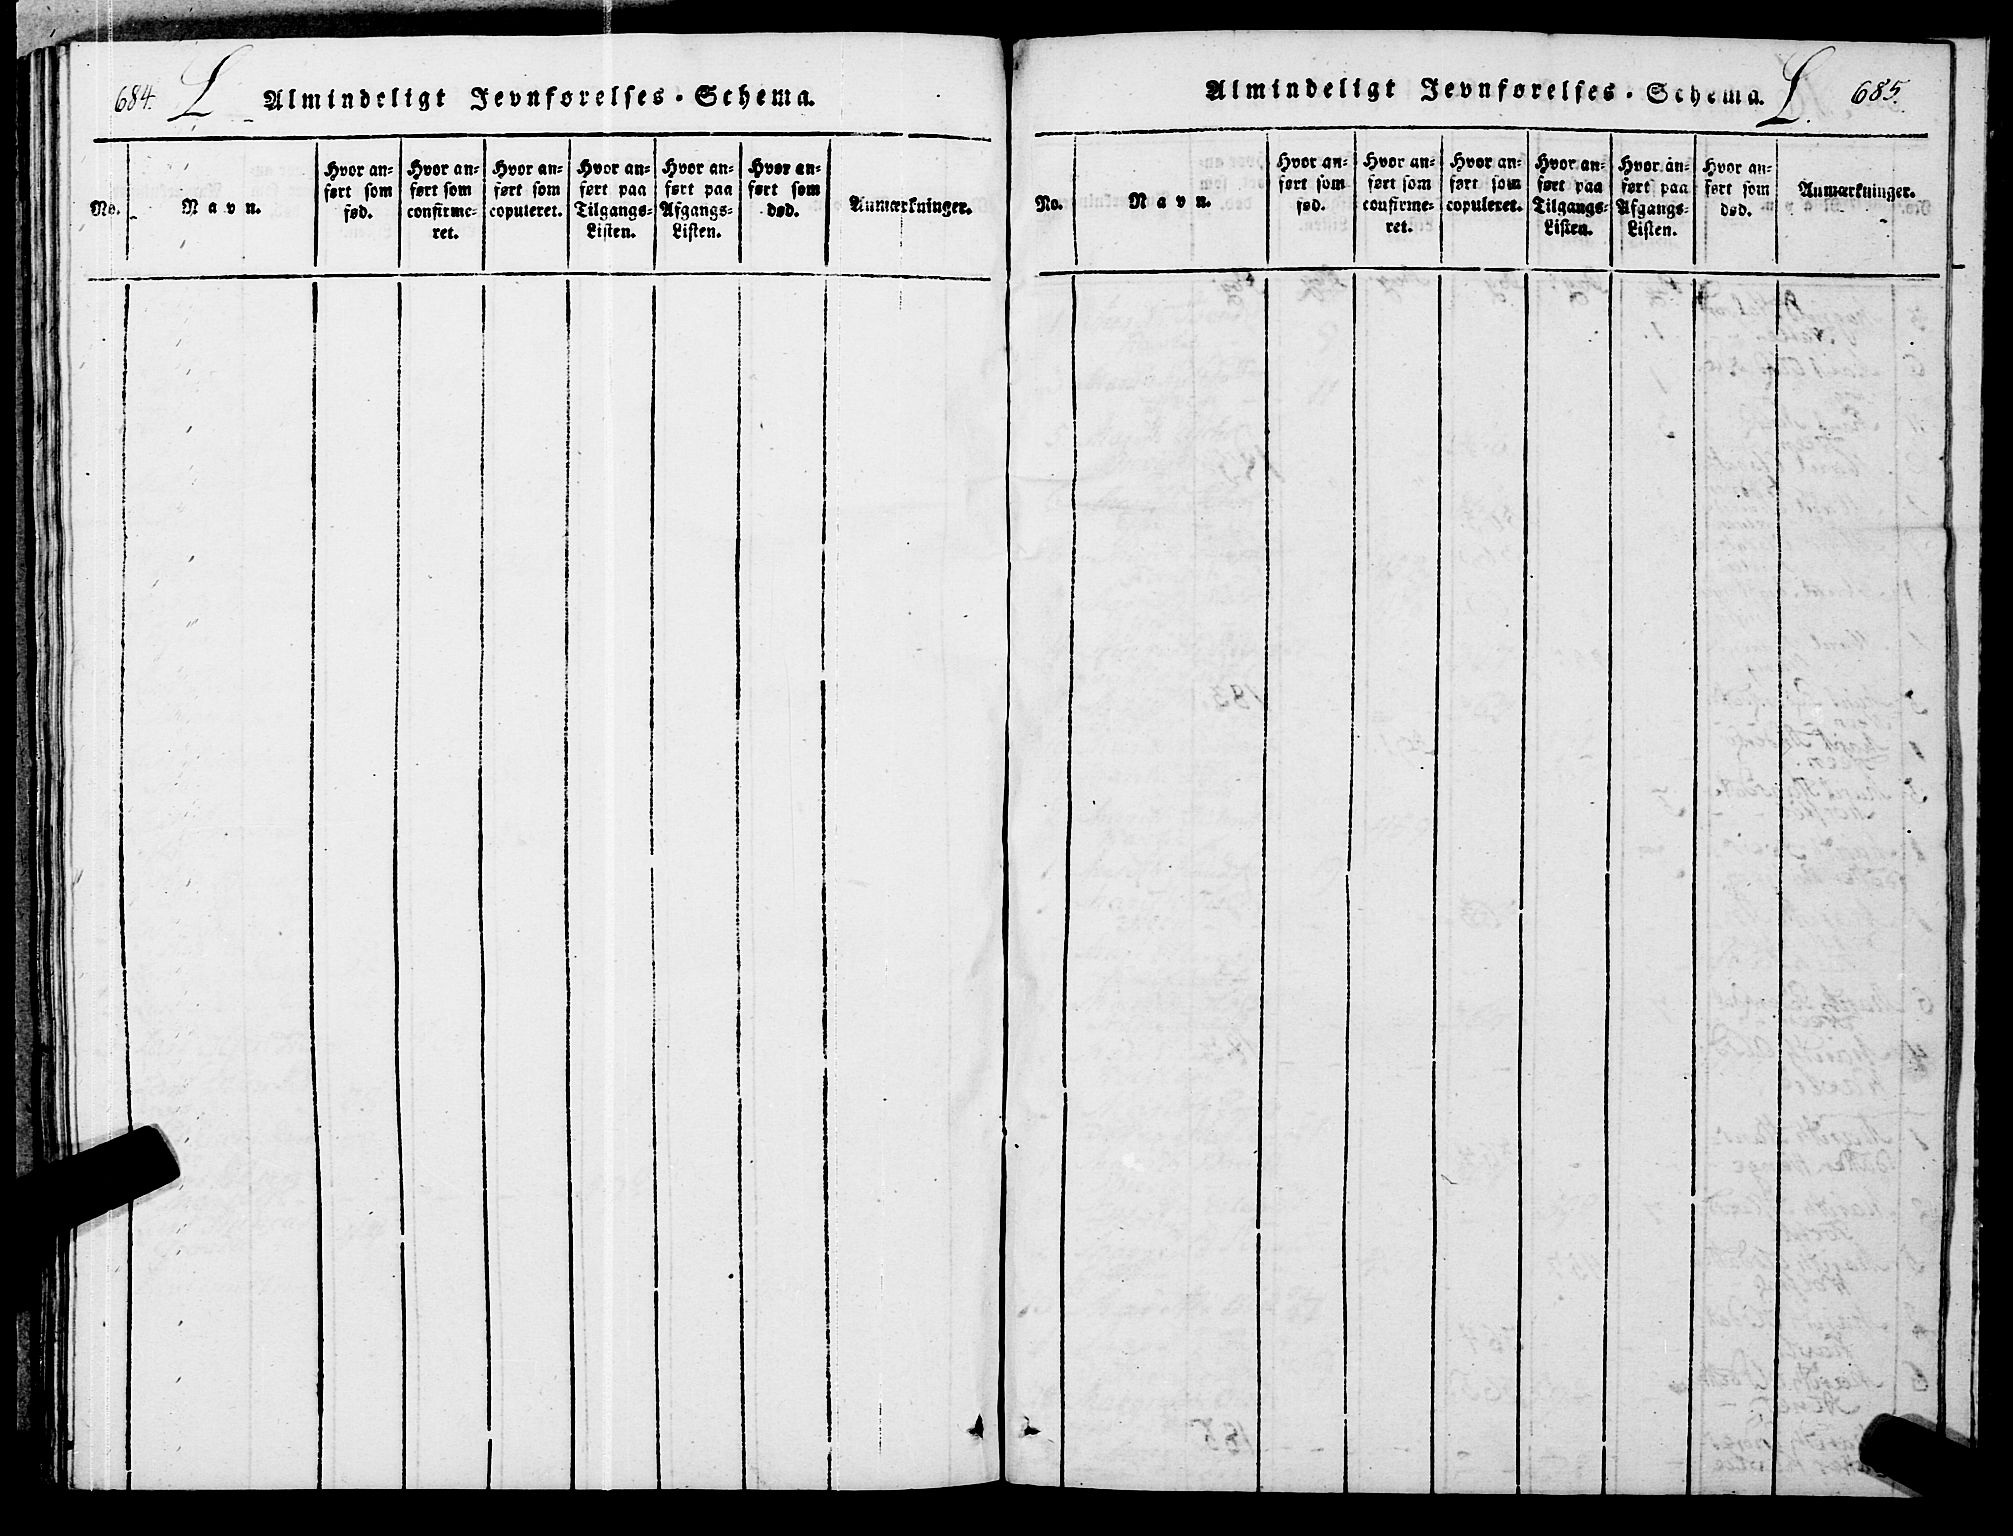 684. L Almindeligt Jevnførelses-Schema.
No.
Navn.
Hvor an-
ført som
fød.
Hvor an-
ført som
confirme-
ret.
Hvor an-
ført som
copuleret.
Hvor an-
ført paa
Tilgangs-
Listen.
Hvor an-
ført paa
Afgangs-
Listen.
Hvor an-
ført som
død.
Anmærkninger.
Almindeligt Jevnførelses-Schema. L. 685.
No.
Navn.
Hvor an-
ført som
fød.
Hvor an-
ført som
confirme-
ret.
Hvor an-
ført som
copuleret.
Hvor an-
ført paa
Tilgangs-
Listen.
Hvor an-
ført paa
Afgangs-
Listen.
Hvor an-
ført som
død.
Anmærkninger.